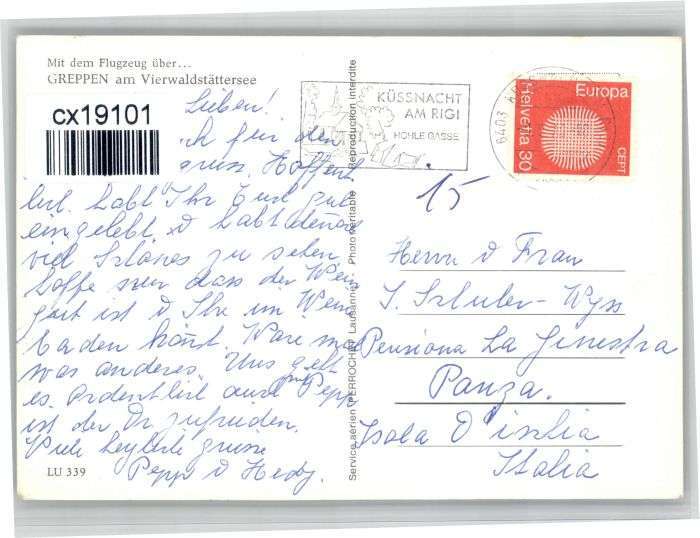 Mit dem Flugzeug über...
GREPPEN am Vierwaldstättersee
cx19101
Lieben!
für den
gruss. Hoffent
lich habt Ihr Euch gut
eingelebt. & habt
viel Schönes zu sehen.
hoffe nur dass der Wein
gut ist & Ihr im
baden könnt. Wäre mal
was anderes. Uns geht
es ordentlich auch Pepp
ist der Dr. zufrieden.
Viele herzliche grüsse
Pepp & Hedy.
LU 339
Service aérien PERROCHET Lausanne Photo véritable Reproduction interdite
KÜSSNACHT
AM RIGI
HOHLE GASSE
6403
Europa
Helvetia 30
CEPT
15
Herrn & Frau
J. Schuler-Wyss
Pensiona La Ginestra
Panza.
Isola D'ischia
Italia